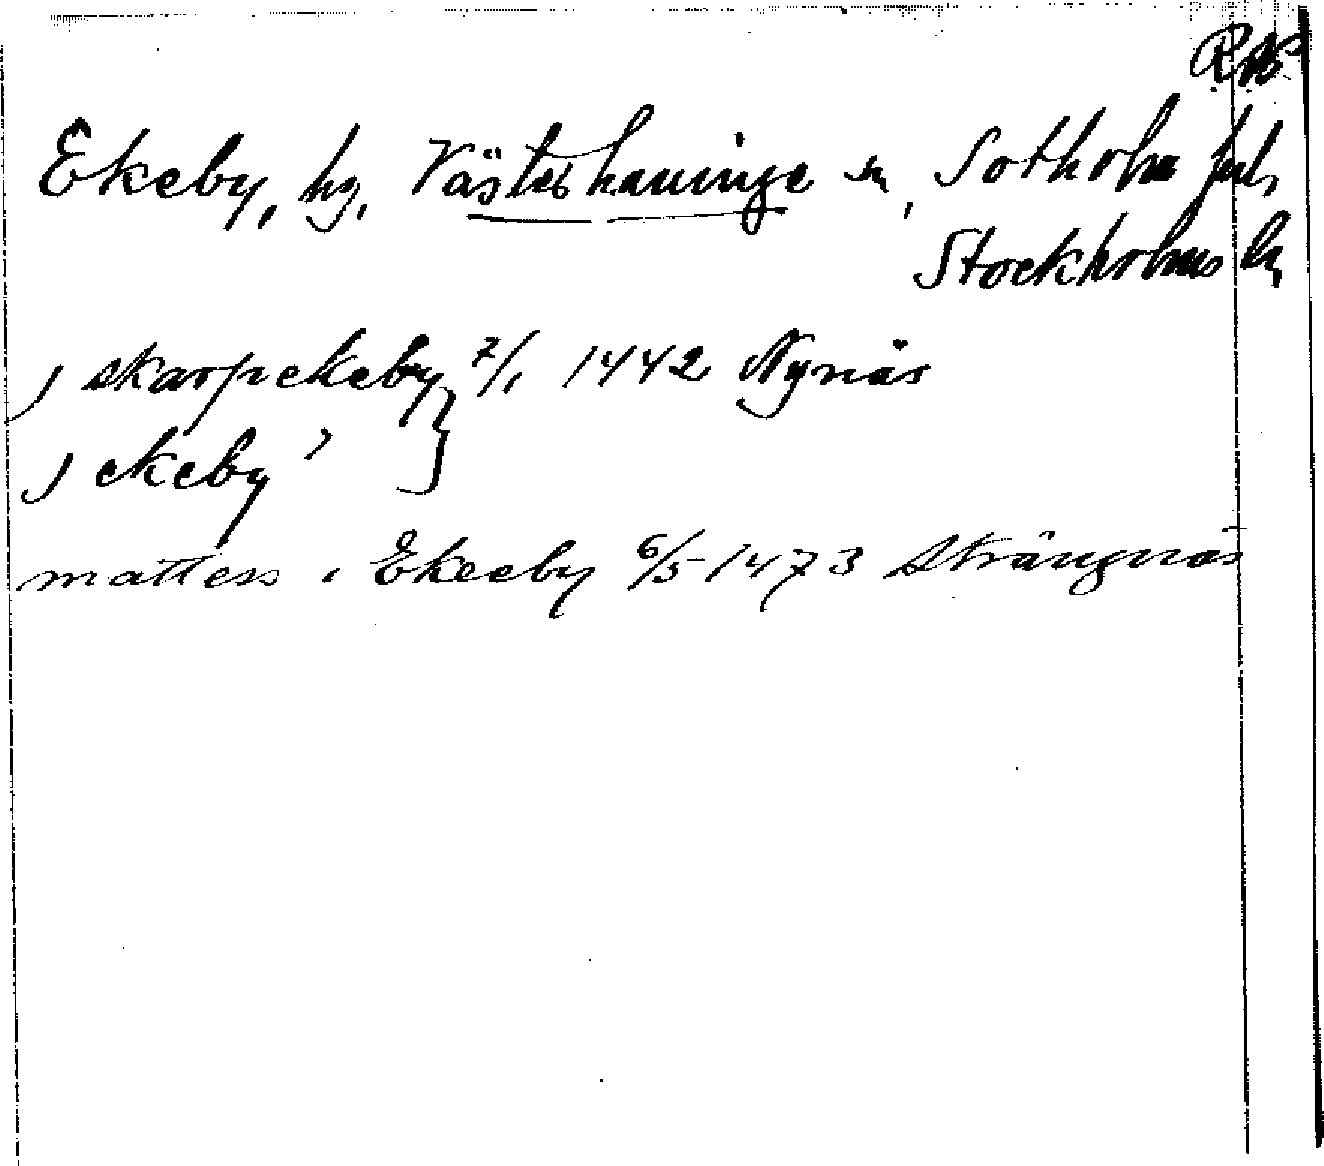 Ekeby, hg, Västerhaninge sn, Sotholm hd,
Stockholms ln
j skarpekeby 7/1 1442 Nynäs
j ekeby }
mattess i Ekeeby 6/5 1473 Strängnäs